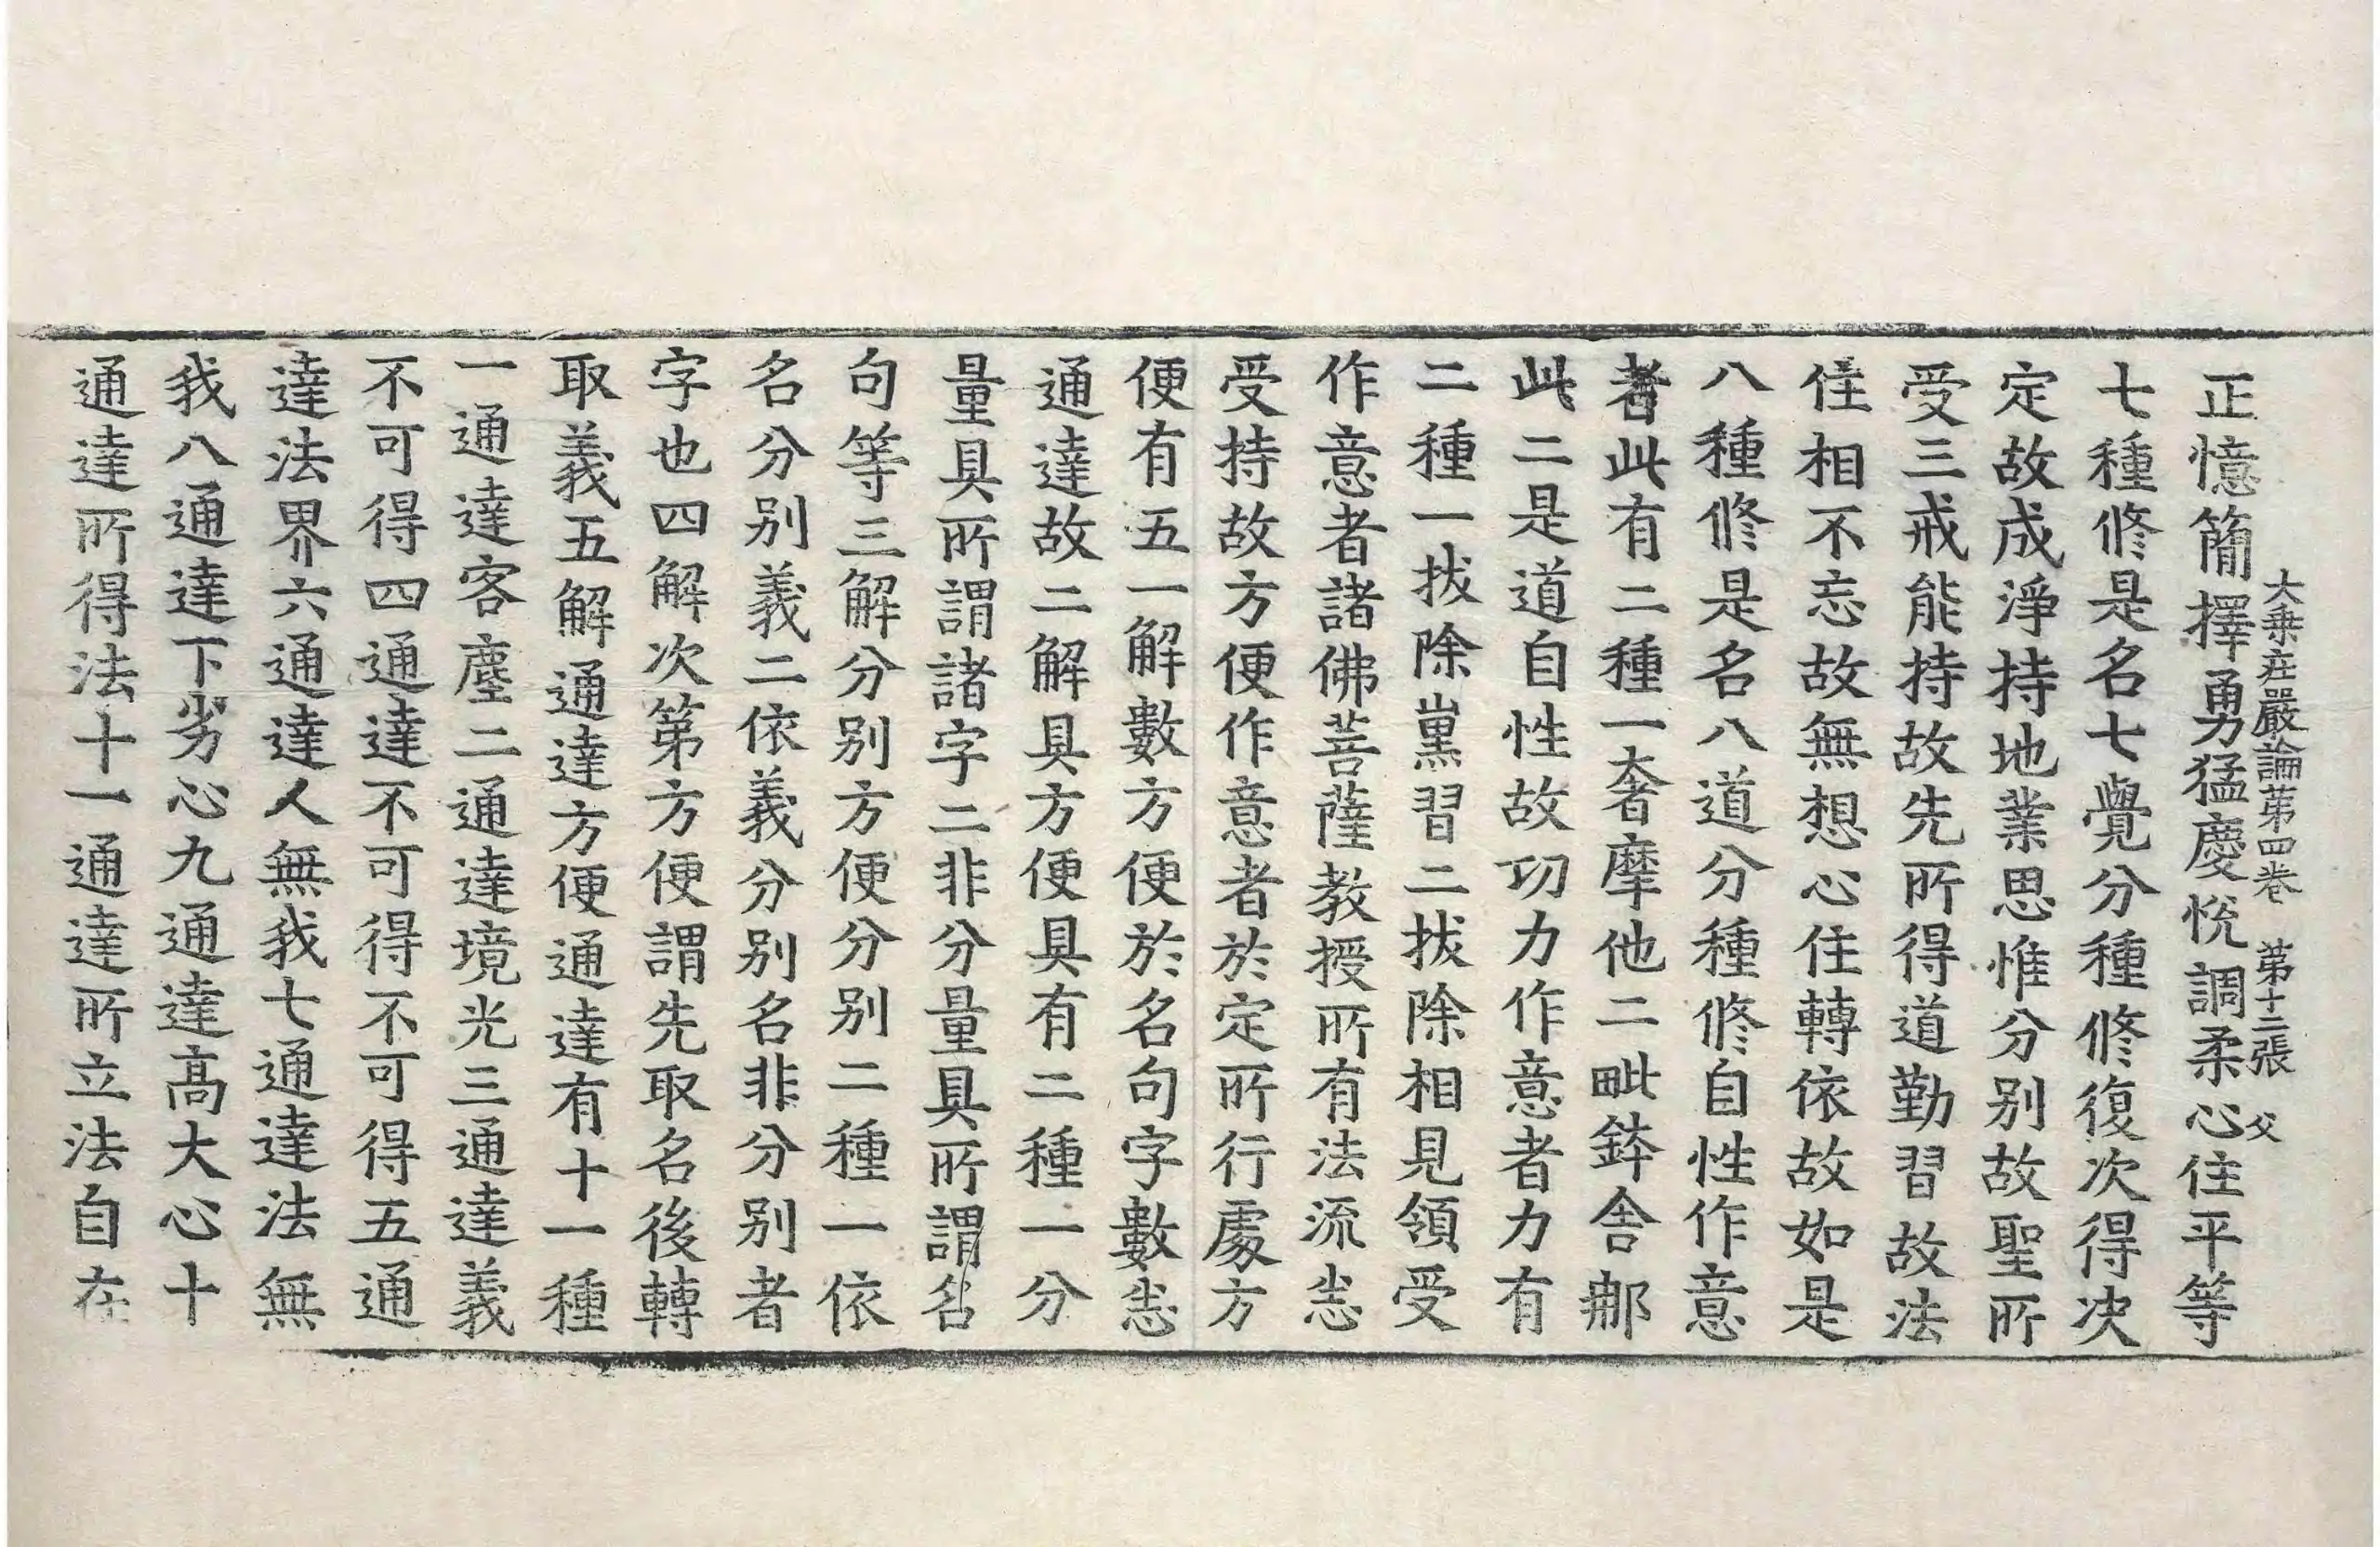 大乗在嚴論第四卷 第十二張 父
正憶簡擇勇猛慶悅調柔心住平等
七種修是名七覺分種修復次得決
定故成淨持地業思惟分別故聖所
受三戒能持故先所得道勤習故法
住相不忘故無想心住轉依故如是
八種修是名八道分種修自性作意
者此有二種一奢摩他二毗鉢舍那
此二是道自性故功力作意者力有
二種一拔除熏習二拔除相見領受
作意者諸佛菩薩教授所有法流悉
受持故方便作意者於定所行處方
便有五一解數方便於名句字數悉
通達故二解具方便具有二種一分
量具所謂諸字二非分量具所謂名
句等三解分別方便分別二種一依
名分別義二依義分別名非分別者
字也四解次第方便謂先取名後轉
取義五解通達方便通達有十一種
一通達客塵二通達境光三通達義
不可得四通達不可得不可得五通
達法界六通達人無我七通達法無
我八通達下劣心九通達高大心十
通達所得法十一通達所立法自在